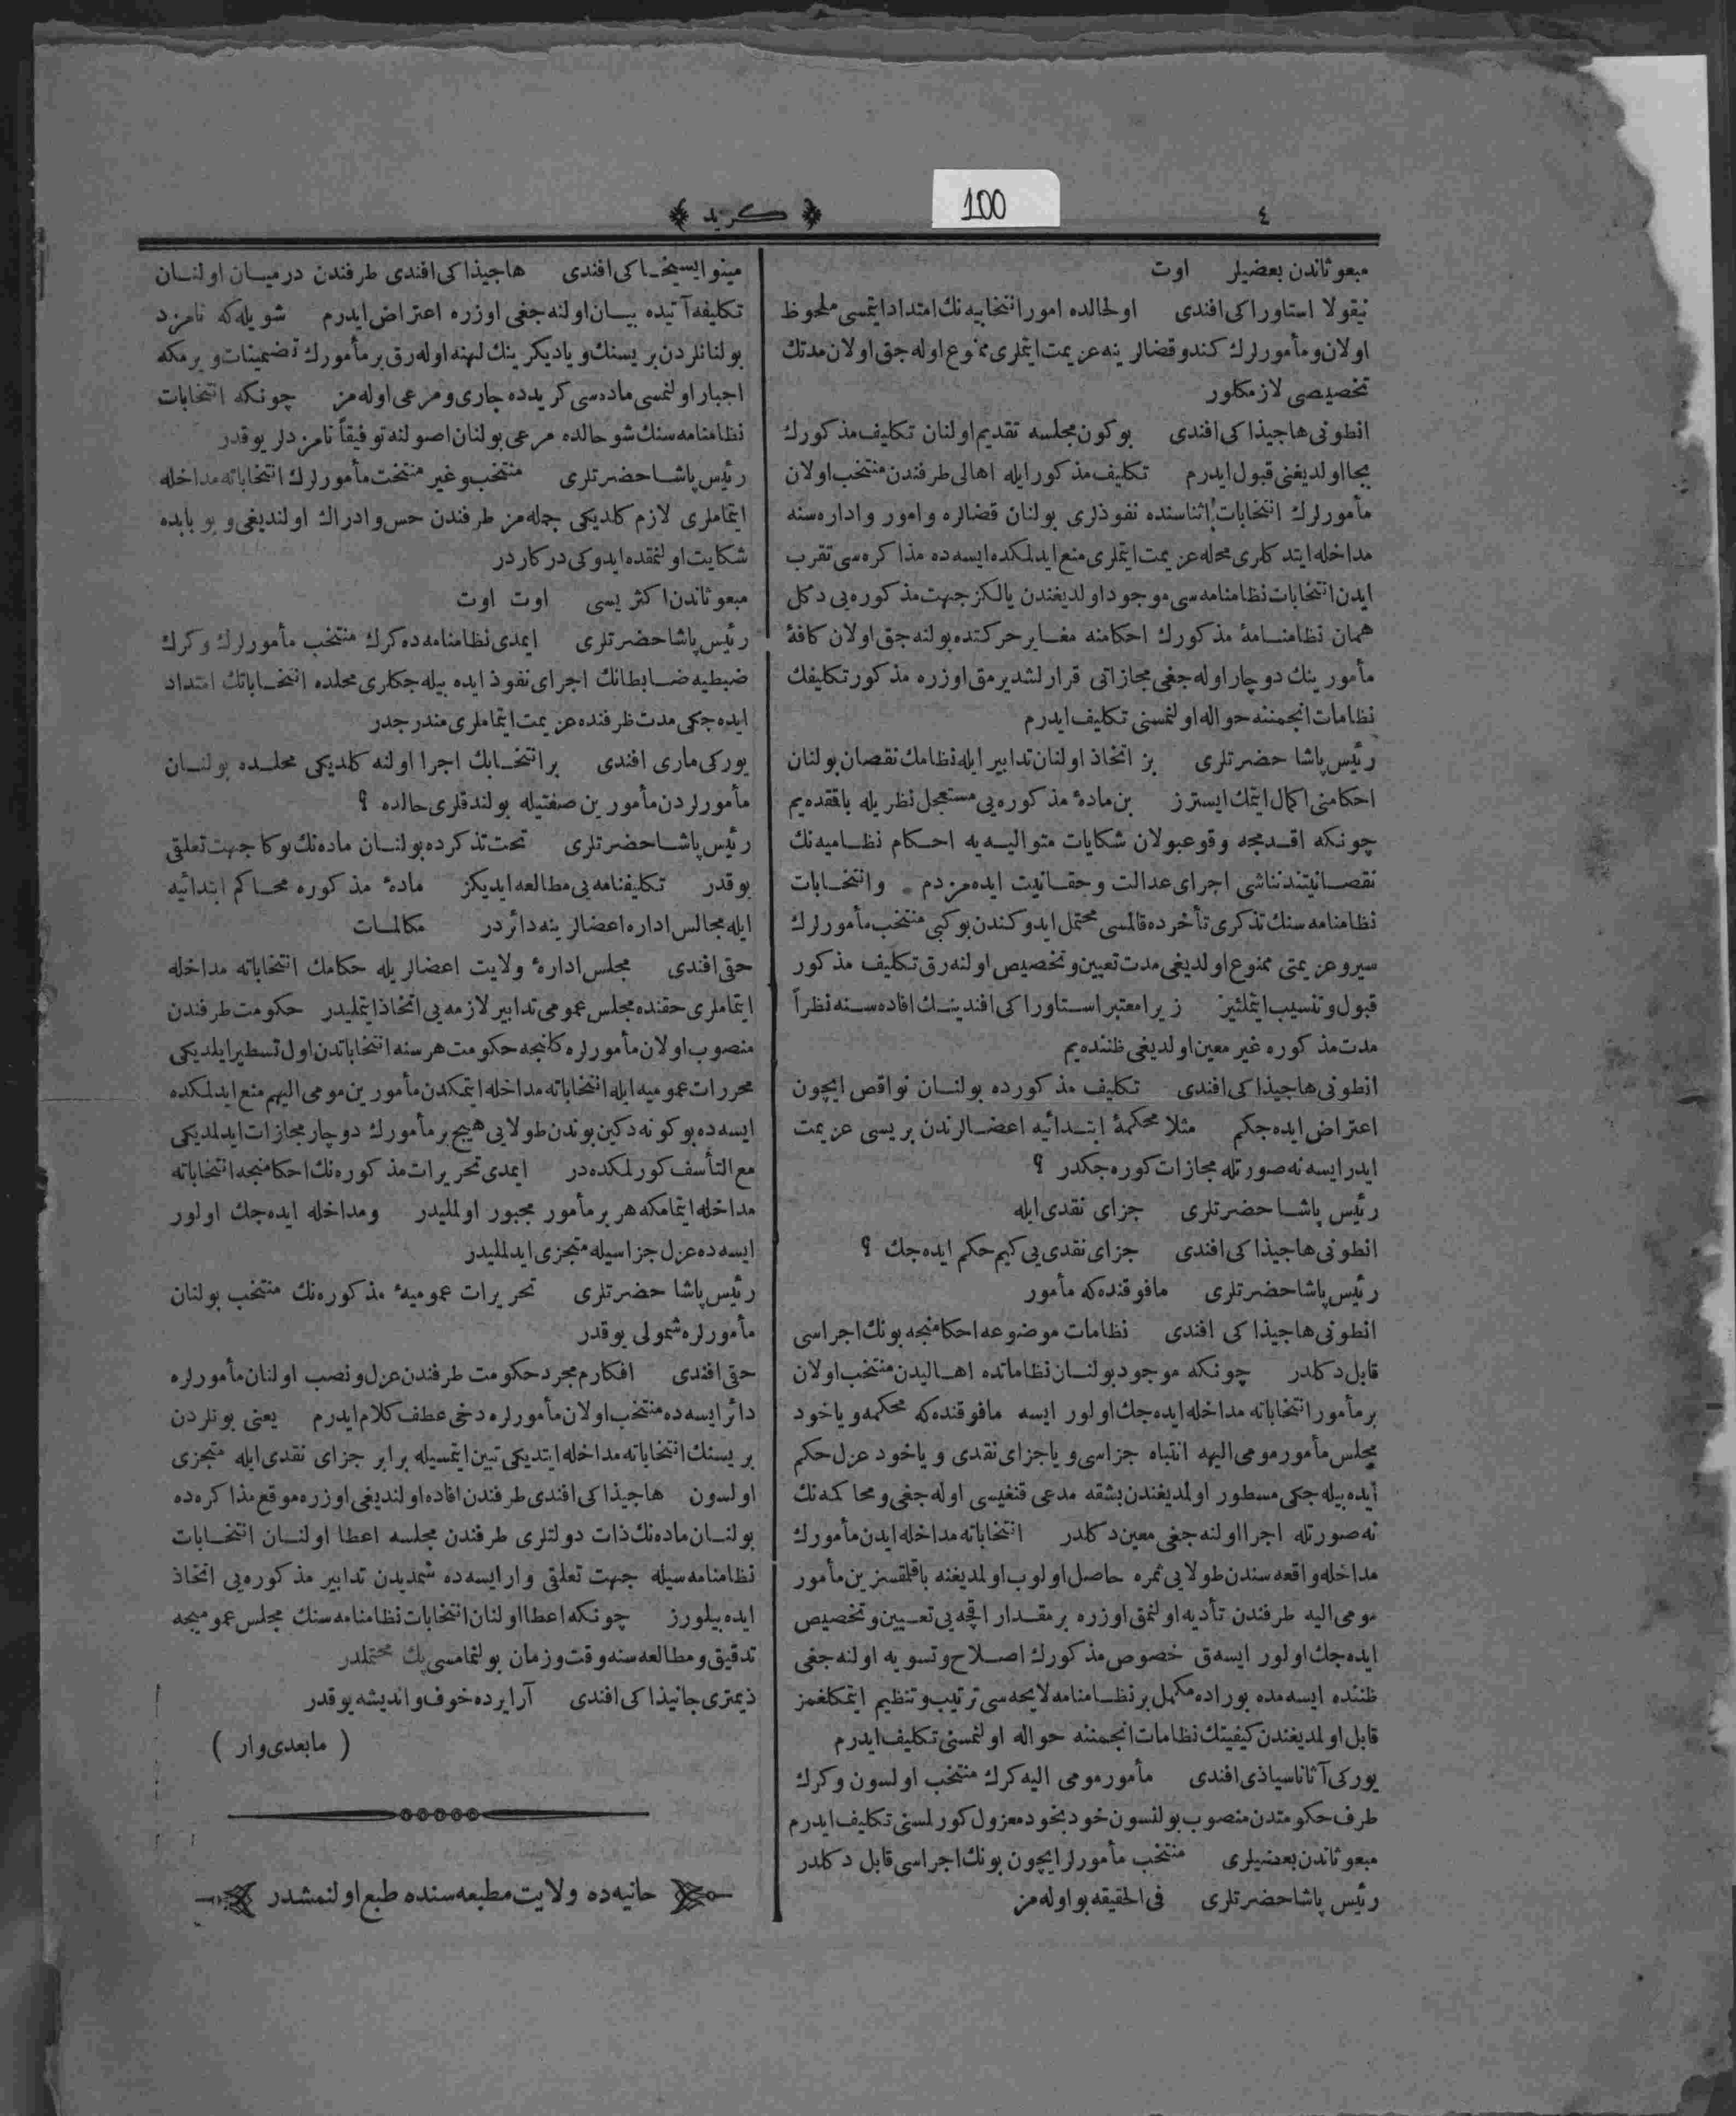 ٤
100
﴿ كريد ﴾
مبعوثاندن بعضيلر اوت
نيقولا استاوراكى افندى اولحالده امور انتخابيه نك امتداد ايتمسى ملحوظ
اولان و مأمورلرك كندو قضالرينه عزيمت ايتملرى ممنوع اوله جق اولان مدتك
تخصيصى لازمكلور
انطونى هاجيذاكى افندى بوكون مجلسه تقديم اولنان تكليف مذكورك
بجا اولديغنى قبول ايدرم تكليف مذكور ايله اهالى طرفندن منتخب اولان
مأمورلرك انتخابات اثناسنده نفوذلرى بولنان قضالره و امور و اداره سنه
مداخله ايتدكلرى محله عزيمت ايتملرى منع ايدلمكده ايسه ده مذاكره سى تقرب
ايدن انتخابات نظامنامه سى موجود اولديغندن يالكز جهت مذكوره يى دكل
همان نظامنامۀ مذكورك احكامنه مغاير حركتده بولنه جق اولان كافۀ
مأمورينك دوچار اوله جغى مجازاتى قرارلشديرمق اوزره مذكور تكليفك
نظامات انجمننه حواله اولنمسنى تكليف ايدرم
رئيس پاشا حضرتلرى بز اتخاذ اولنان تدابير ايله نظامك نقصان بولنان
احكامنى اكمال ايتمك ايسترز بن مادۀ مذكوره يى مستعجل نظريله باققده يم
چونكه اقدمجه وقوعبولان شكايات متواليه يه احكام نظاميه نك
نقصانيتندنناشى اجراى عدالت و حقانيت ايده مزدم . و انتخابات
نظامنامه سنك تذكرى تأخرده قالمسى محتمل ايدوكندن بوكبى منتخب مأمورلرك
سير و عزيمتى ممنوع اولديغى مدت تعيين و تخصيص اولنه رق تكليف مذكور
قبول و تنسيب ايتملثيز زيرا معتبر استاوراكى افندينك افاده سنه نظراً
مدت مذكوره غير معين اولديغى ظننده يم
انطونى هاجيذاكى افندى تكليف مذكورده بولنان نواقص ايچون
اعتراض ايده جكم مثلا محكمۀ ابتدائيه اعضالرندن بريسى عزيمت
ايدر ايسه نه صورتله مجازات كوره جكدر ؟
رئيس پاشا حضرتلرى جزاى نقدى ايله
انطونى هاجيذاكى افندى جزاى نقدى يى كيم حكم ايده جك ؟
رئيس پاشا حضرتلرى مافوقنده كه مأمور
انطونى هاجيذاكى افندى نظامات موضوعه احكامنجه بونك اجراسى
قابل دكلدر چونكه موجود بولنان نظاماتده اهاليدن منتخب اولان
بر مأمور انتخاباته مداخله ايده جك اولور ايسه مافوقنده كه محكمه و ياخود
مجلس مأمور مومى اليهه انتباه جزاسى و ياجزاى نقدى و ياخود عزل حكم
ايده بيله جكى مسطور اولمديغندن بشقه مدعى قنغيسى اوله جغى و محاكمه نك
نه صورتله اجرا اولنه جغى معين دكلدر انتخاباته مداخله ايدن مأمورك
مداخلۀ واقعه سندن طولايى ثمره حاصل اولوب اولمديغنه باقلقسزين مأمور
مومى اليه طرفندن تأديه اولنمق اوزره بر مقدار اقچه يى تعيين و تخصيص
ايده جك اولور ايسه ق خصوص مذكورك اصلاح و تسويه اولنه جغى
ظننده ايسه مده بوراده مكمل بر نظامنامه لايحه سى ترتيب و تنظيم ايتمكلغمز
قابل اولمديغندن كيفيتك نظامات انجمننه حواله اولنمسنى تكليف ايدرم
يوركى آثاناسياذى افندى مأمور مومى اليه كرك منتخب اولسون و كرك
طرف حكومتدن منصوب بولنسون خود بخود معزول كورلمسنى تكليف ايدرم
مبعوثاندن بعضيلرى منتخب مأمورلر ايچون بونك اجراسى قابل دكلدر
رئيس پاشا حضرتلرى فى الحقيقه بو اوله مز
مينوا افندى هاجيذاكى افندى طرفندن درميان اولنان
تكليفه آتيده بيان اولنه جغى اوزره اعتراض ايدرم شويله كه نامزد
بولنانلردن بريسنك و ياديكرينك لهنه اوله رق بر مأمورك تضمينات ويرمكه
اجبار اولنمسى ماده سى كريدده جارى و مرعى اوله مز چونكه انتخابات
نظامنامه سنك شو حالده مرعى بولنان اصولنه توفيقاً نامزدلر يوقدر
رئيس پاشا حضرتلرى منتخب و غير منتخب مأمورلرك انتخاباته مداخله
ايتماملرى لازم كلديكى جمله مز طرفندن حس و ادراك اولنديغى و بو بابده
شكايت اولنمقده ايدوكى دركاردر
مبعوثاندن اكثريسى اوت اوت
رئيس پاشا حضرتلرى ايمدى نظامنامه ده كرك منتخب مأمورلرك و كرك
ضبطيه ضابطانك اجراى نفوذ ايده بيله جكلرى محلده انتخاباتك امتداد
ايده جكى مدت ظرفنده عزيمت ايتماملرى مندرجدر
يوركى مارى افندى بر انتخابك اجرا اولنه كلديكى محلده بولنان
مأمورلردن مأمورين صفتيله بولندقلرى حالده ؟
رئيس پاشا حضرتلرى تحت تذكرده بولنان ماده نك بوكا جهت تعلقى
يوقدر تكليفنامه يى مطالعه ايديكز مادۀ مذكوره محاكم ابتدائيه
ايله مجالس اداره اعضالرينه دائردر مكالمات
حقى افندى مجلس ادارۀ ولايت اعضالريله حكامك انتخاباته مداخله
ايتماملرى حقنده مجلس عمومى تدابير لازمه يى اتخاذ ايتمليدر حكومت طرفندن
منصوب اولان مأمورلره كلنجه حكومت هر سنه انتخاباتدن اول تسطير ايلديكى
محررات عموميه ايله انتخاباته مداخله ايتمكدن مأمورين مومى اليهم منع ايدلمكده
ايسه ده بوكونه دكين بوندن طولايى هيچ بر مأمورك دوچار مجازات ايدلمديكى
مع التأسف كورلمكده در ايمدى تحريرات مذكوره نك احكامنجه انتخاباته
مداخله ايتمامكه هر بر مأمور مجبور اولمليدر ومداخله ايده جك اولور
ايسه ده عزل جزاسيله متجزى ايدلمليدر
رئيس پاشا حضرتلرى تحريرات عموميۀ مذكوره نك منتخب بولنان
مأمورلره شمولى يوقدر
حقى افندى افكارم مجرد حكومت طرفندن عزل و نصب اولنان مأمورلره
دائر ايسه ده منتخب اولان مأمورلره دخى عطف كلام ايدرم يعنى بونلردن
بريسنك انتخاباته مداخله ايتديكى تبين ايتمسيله برابر جزاى نقدى ايله متجزى
اولسون هاجيذاكى افندى طرفندن افاده اولنديغى اوزره موقع مذاكره ده
بولنان ماده نك ذات دولتلرى طرفندن مجلسه اعطا اولنان انتخابات
نظامنامه سيله جهت تعلقى وار ايسه ده شمديدن تدابير مذكوره يى اتخاذ
ايده بيلورز چونكه اعطا اولنان انتخابات نظامنامه سنك مجلس عموميجه
تدقيق و مطالعه سنه وقت و زمان بولنمامسى پك محتملدر
ذيمترى جانيذاكى افندى آرايرده خوف و انديشه يوقدر
( مابعدى وار )
حانيه ده ولايت مطبعه سنده طبع اولنمشدر